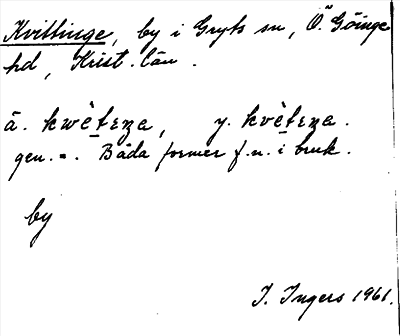 Kvittinge, by i Gryts sn, Ö. Göinge
hd, Krist. län.
ä. kwètɛŋa, y. kvètɛŋa.
gen. =. Båda former f.n. i bruk.
by
I. Ingers 1961.